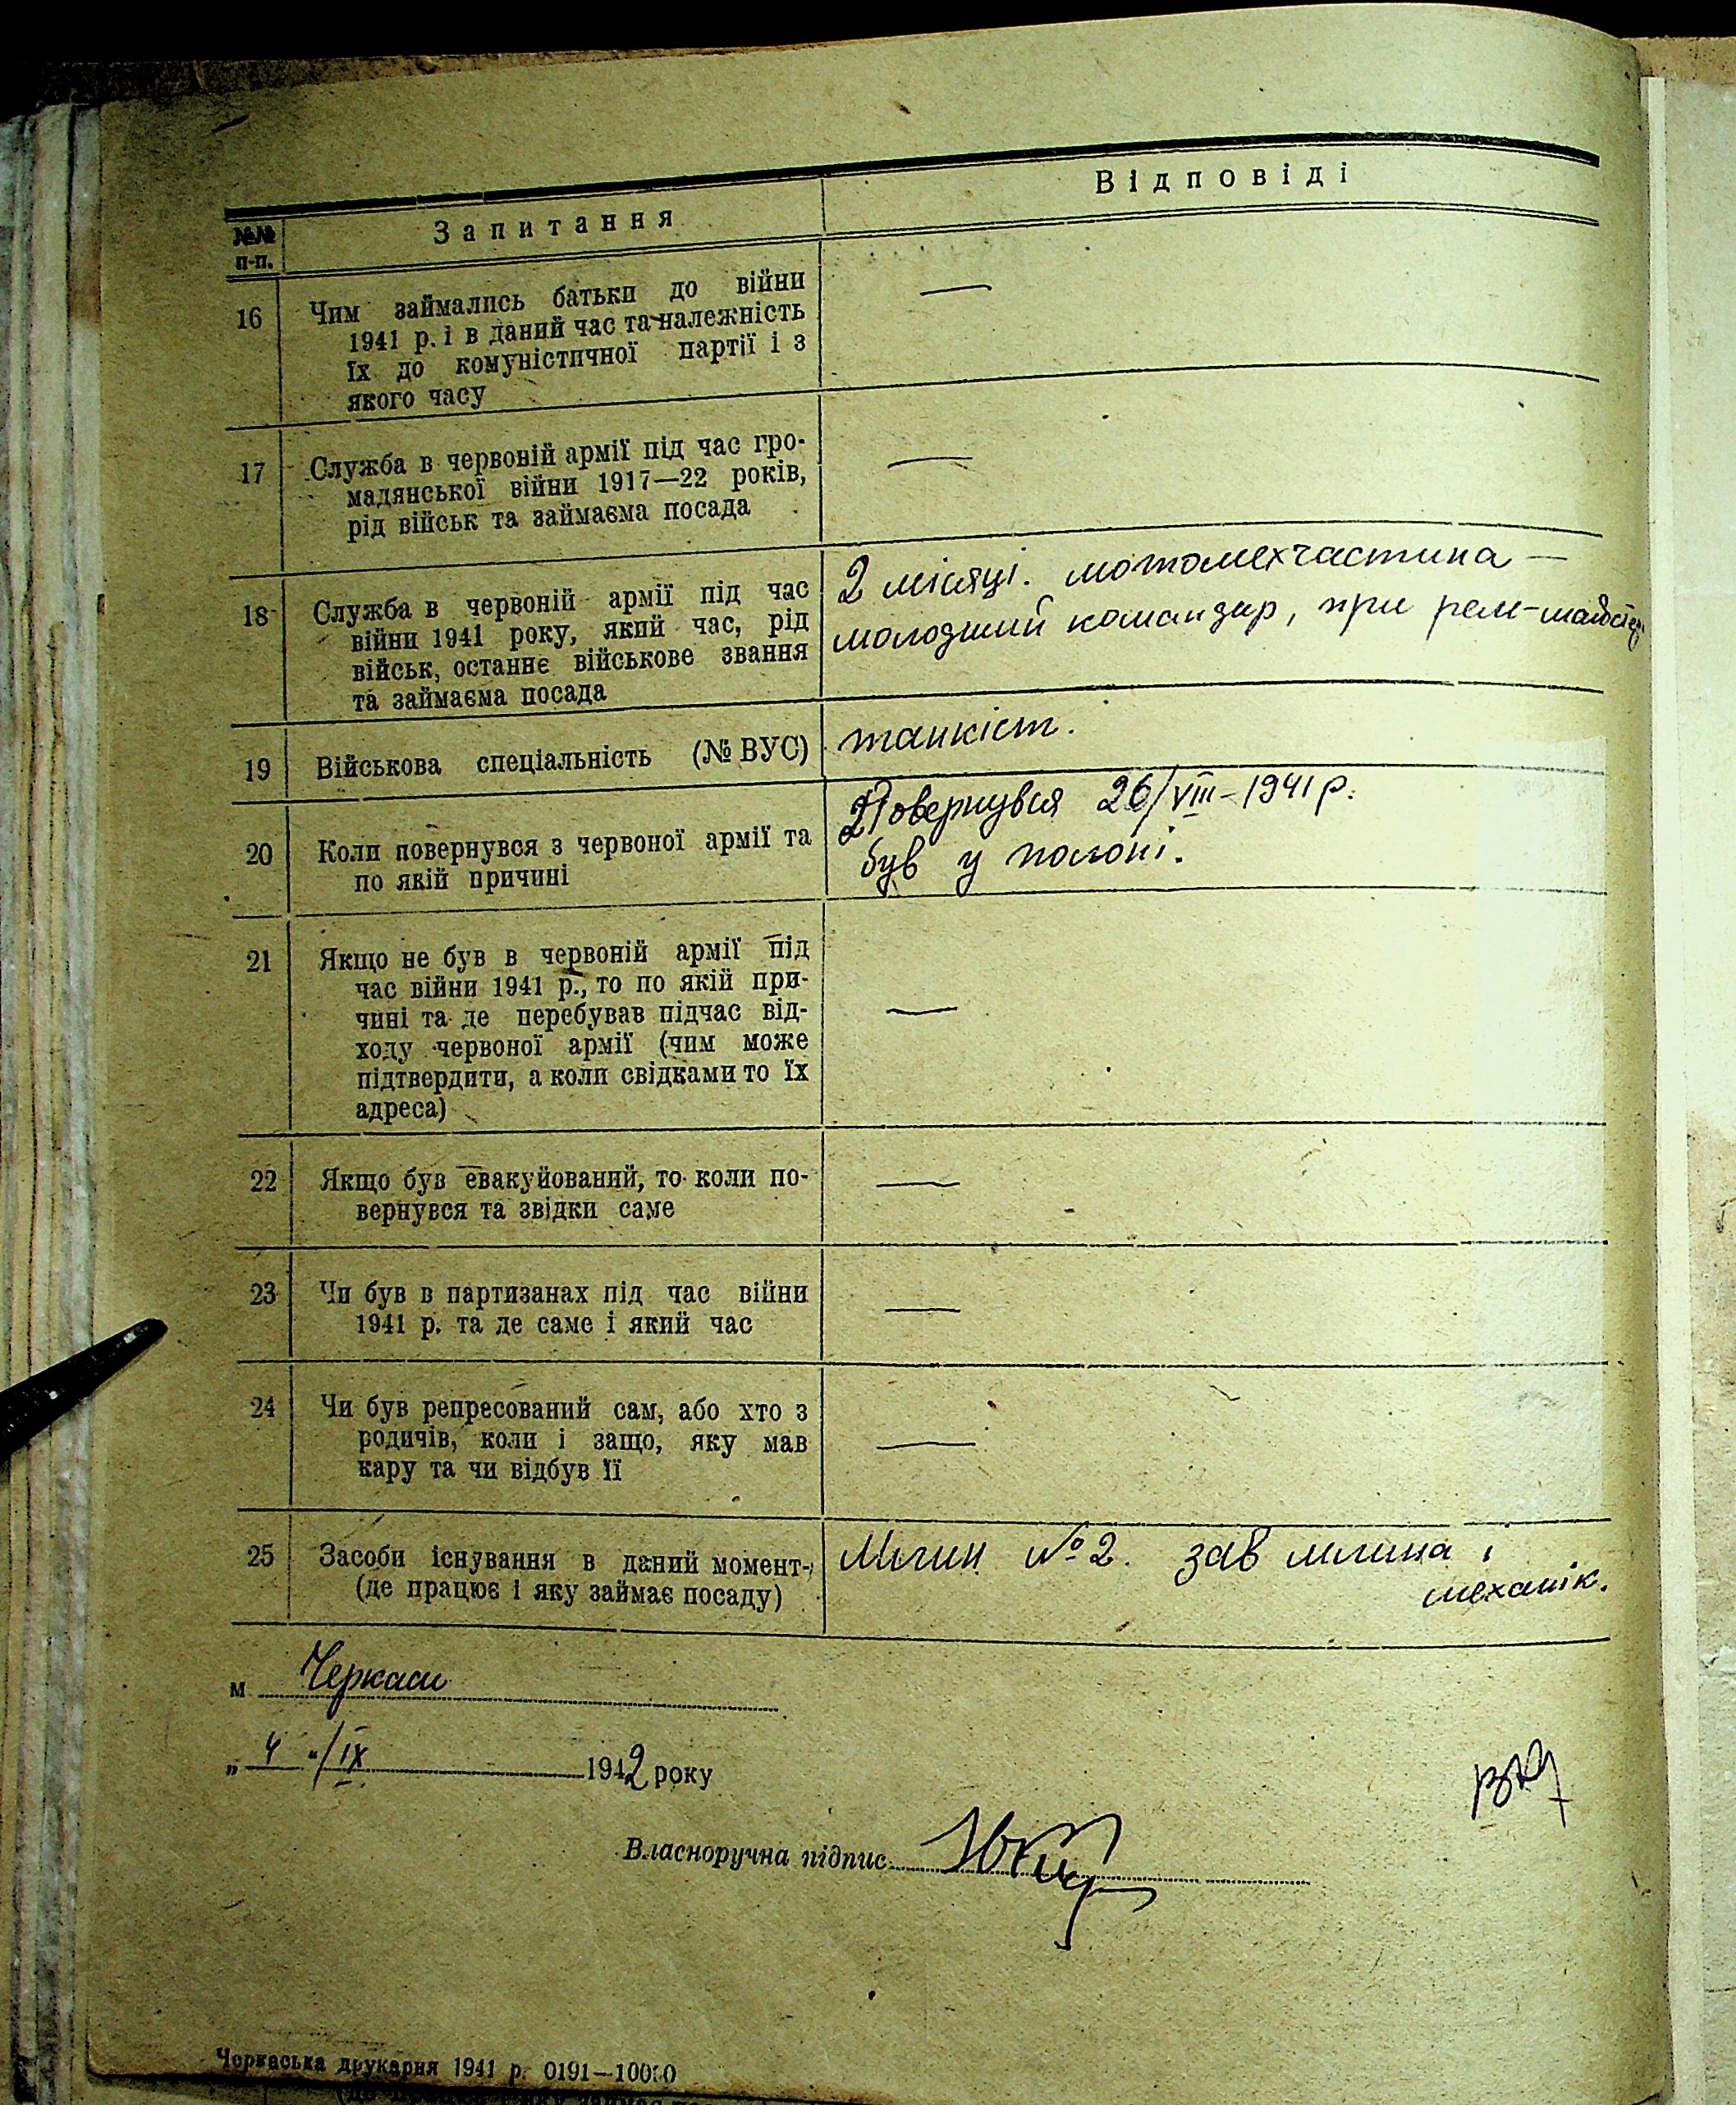 №№ п-п.
Запитання
Відповіді
16
Чим займались батьки до війни
1941 р. і в даний час та належність
їх до комуністичної партії і з
якого часу
—
17
Служба в червоній армії під час гро-
мадянської війни 1917—22 років,
рід військ та займаєма посада
—
18
Служба в червоній армії під час
війни 1941 року, який час, рід
військ, останнє військове звання
та займаєма посада
2 місяці. мотомехчастина —
молодший командир, при рем-
19
Військова спеціальність (№ ВУС)
танкіст.
20
Коли повернувся з червоної армії та
по якій причині
Повернувся 26/VIII–1941 р.
був у полоні.
21
Якщо не був в червоній армії під
час війни 1941 р., то по якій при-
чині та де перебував підчас від-
ходу червоної армії (чим може
підтвердити, а коли свідками то їх
адреса)
—
22
Якщо був евакуйований, то коли по-
вернувся та звідки саме
—
23
Чи був в партизанах під час війни
1941 р. та де саме і який час
—
24
Чи був репресований сам, або хто з
родичів, коли і защо, яку мав
кару та чи відбув її
—
25
Засоби існування в даний момент
(де працює і яку займає посаду)
Млин №2. зав млина і
механік.
м Черкаси
„ 4 "/IX 1942 року
Власноручна підпис
Черкаська друкарня 1941 р. 0191—10000